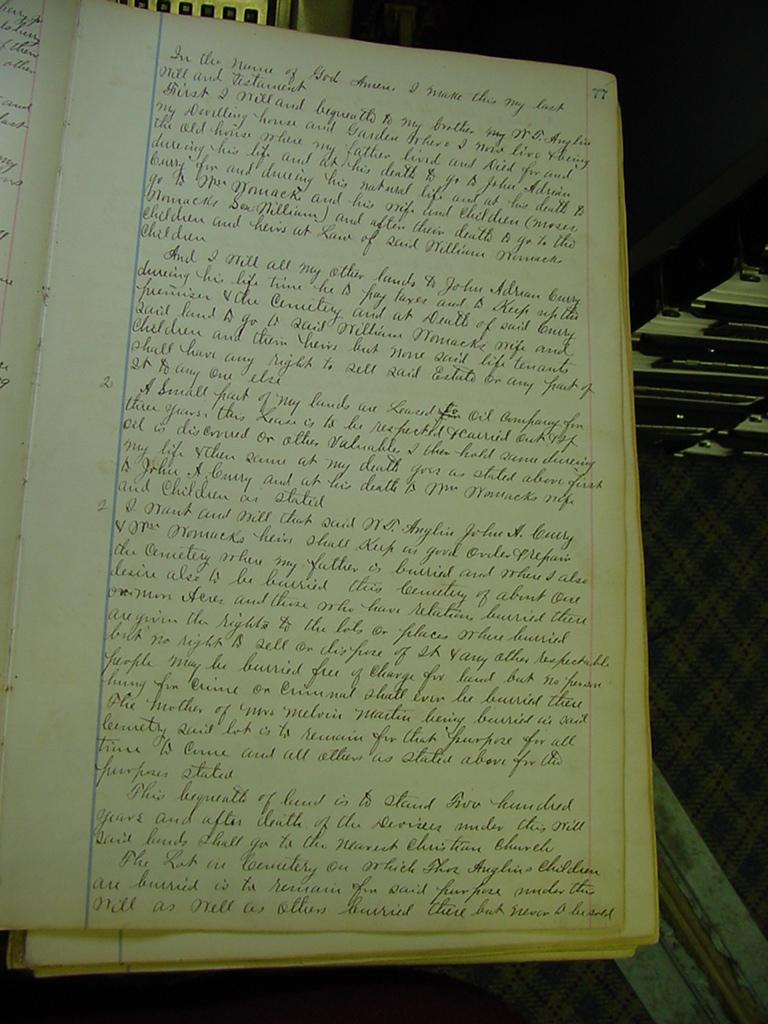 77
In the name of God Amen. I make this my last
Will and Testament
First I Will and bequeath to my brother my W. T. Anglin
my Dwelling house and Garden where I now live & being
the old house where my father lived and Died for and
dureing his life and at his death to go to John Adrian
Curry for and dureing his natural life and at his death to
go to Wm Womack and his wife and Children (Moses
Womacks Son William) and after their death to go to the
Children and heirs at Law of said William Womacks
Children
And I Will all my other lands to John Adrian Curry
dureing his life time he to pay taxes and to Keep up the
premises & the Cemetery and at Death of said Curry
said land to go to said William Womacks wife and
Children and their heirs but none said life tenants
shall have any right to sell said Estate or any part of
It to any one else
2 A Small part of my lands are Leased to Oil Company for
three years. this Lease is to be respected & carried out & if
oil is discovered or other Valuables I then hold same dureing
my life & then same at my death goes as stated above first
to John A. Curry and at his death to Wm Womacks wife
and Children as stated
2 I want and will that said W. T. Anglin John A. Curry
& Wm Womacks heirs shall Keep in good Order & repair
the Cemetery where my father is burried and where I also
desire also to be burried this Cemetery of about One
or more Acres and those who have relations burried there
are given the rights to the lots or places where burried
but no right to sell or dispose of It & any other respectable
people may be burried free of Charge for land but no person
hung for Crime or Criminal shall ever be burried there
The Mother of Mrs Melvin Martin being burried in said
Cemetry said lot is to remain for that purpose for all
time to Come and all others as stated above for the
purposes stated
This bequeath of land is to stand Two hundred
years and after death of the Devisees under this Will
said lands shall go to the nearest Christian Church
The Lot in Cemetery on which Thos Anglins Children
are burried is to remain for said purpose under this
Will as well as others burried there but never to be sold